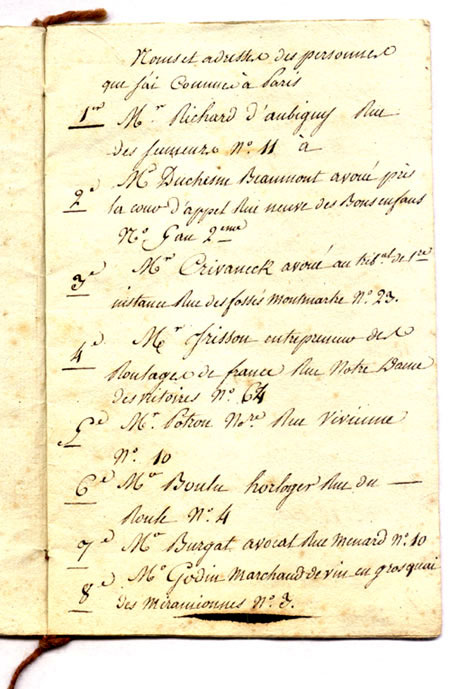 Noms et adresses des personnes
que j'ai Connues à Paris
1re Mr Richard d'aubigny Rue
des jeuneurs No. 11 à
2e Mr Duchesne Beaumont avoué près
la cour d'appel Rue neuve des Bons enfans
No. 9 au 2eme
3e Mr Crivaneck avoué au tribal de 1re
instance Rue des fossés montmartre No. 23.
4e Mr frisson entrepreneur des
Roulages de france Rue Notre Dame
des victoires No. 64
5e Mr. Potron Nore Rue Vivienne
No. 10
6e Mr Boulu horloger Rue du —
Roule No. 4
7e Mr Burgat avocat Rue menard No. 10
8e Mr Godin Marchand de vin en gros quai
des miramionnes No. 3.